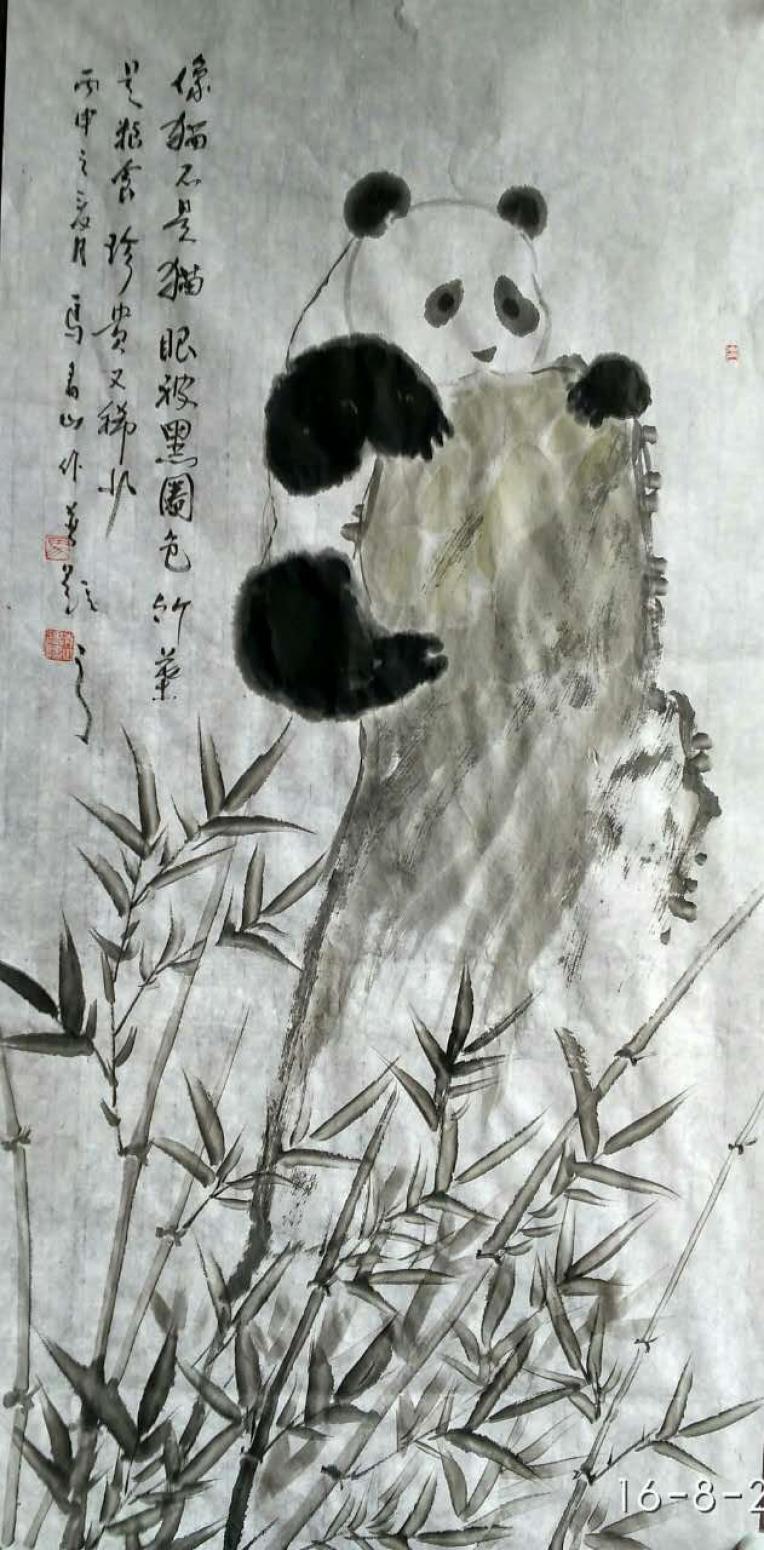 像猫不是猫眼被黑圈包竹葉
是粮食珍贵又稀少
丙申之夏月馬青山作并题
16-8-2